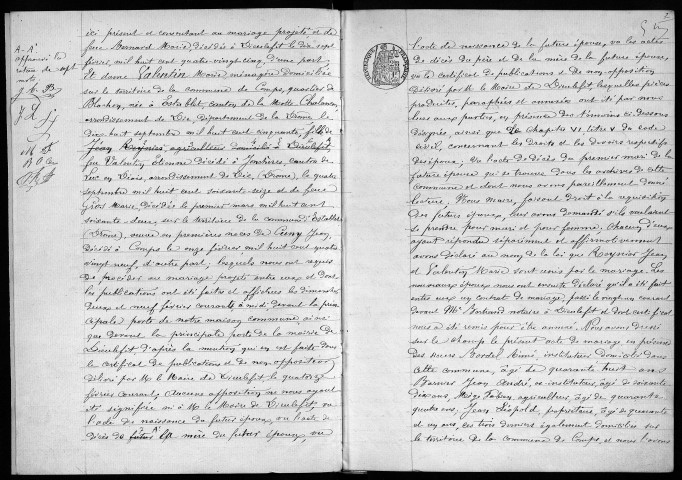 A. R.
approuvé la
rature de sept
mots
ici présent et consentant au mariage projeté et de
feue Bernard Marie, décédée à Dieulefit le dix sept
février, mil huit cent quatre-vingt-cinq, d'une part,
Et dame Valentin Marie, ménagère domiciliée
sur le territoire de la commune de Comps, quartier de
Blachey, née à Establet, canton de la Motte Chalancon,
arrondissement de Die, département de la Drôme, le
dix huit septembre mil huit cent cinquante, fille de
Jean Reynier, agriculteur domicilié à Dieulefit,
feu Valentin Etienne décédé à Jonchères, canton de
Luc en Diois, arrondissement de Die, (Drôme), le quatre
septembre mil huit cent soixante-seize et de feue
Gros Marie décédée le premier mars mil huit cent
soixante deux, sur le territoire de la commune d'Establet
(Drôme), veuve en premières noces de Cuny Jean,
décédé à Comps le onze février mil huit cent quatre
vingt neuf, d'autre part, lesquels nous ont requis
de procéder au mariage projeté entre eux et dont
les publications ont été faites et affichées les dimanches
deux et neuf février courant, à midi devant la prin
cipale porte de notre maison commune ainsi
que devant la principale porte de la mairie de
Dieulefit d'après la mention qui en est faite dans
le certificat de publications et de non opposition
délivré par M. le Maire de Dieulefit, le quatorze
février courant, aucune opposition ne nous ayant
été signifiée ni à M. le Maire de Dieulefit, vu
l'acte de naissance du futur époux, vu l'acte de
décès de la mère du futur époux, vu
l'acte de naissance de la future épouse, vu les actes
de décès du père et de la mère de la future épouse,
vu le certificat de publications et de non opposition
délivré par M. le Maire de Dieulefit, lesquelles pièces
produites, paraphées et annexées ont été lues par
nous aux parties, en présence des témoins ci-dessous
désignés, ainsi que le chapitre VI, titre V du code
civil, concernant les droits et les devoirs respectifs
des époux. De l'acte de décès du premier mari de la
future épouse qui se trouve dans les archives de cette
commune et dont nous avons pareillement donné
lecture. Nous maire, faisant droit à la réquisition
des futurs époux, leur avons demandé s'ils veulent
se prendre pour mari et pour femme, chacun d'eux
ayant répondu séparément et affirmativement
avons déclaré au nom de la loi que Reynier Jean
et Valentin Marie sont unis par le mariage. Les
nouveaux époux nous ont ensuite déclaré qu'il a été fait
entre eux un contrat de mariage passé le vingt courant
devant Me Bertrand notaire à Dieulefit et dont certificat
nous a été remis pour être annexé. Nous avons dressé
sur le champ le présent acte de mariage en présence
des sieurs Bordel Aimé, instituteur, domicilié dans
cette commune, âgé de quarante huit ans
Barnier Jean André, ex instituteur, âgé de soixante
dix ans, Mège Fabien, agriculteur, âgé de quarante
quatre ans, Jean Léopold, propriétaire, âgé de quarante
et un ans, les trois derniers également domiciliés sur
le territoire de la commune de Comps, et nous l'avons